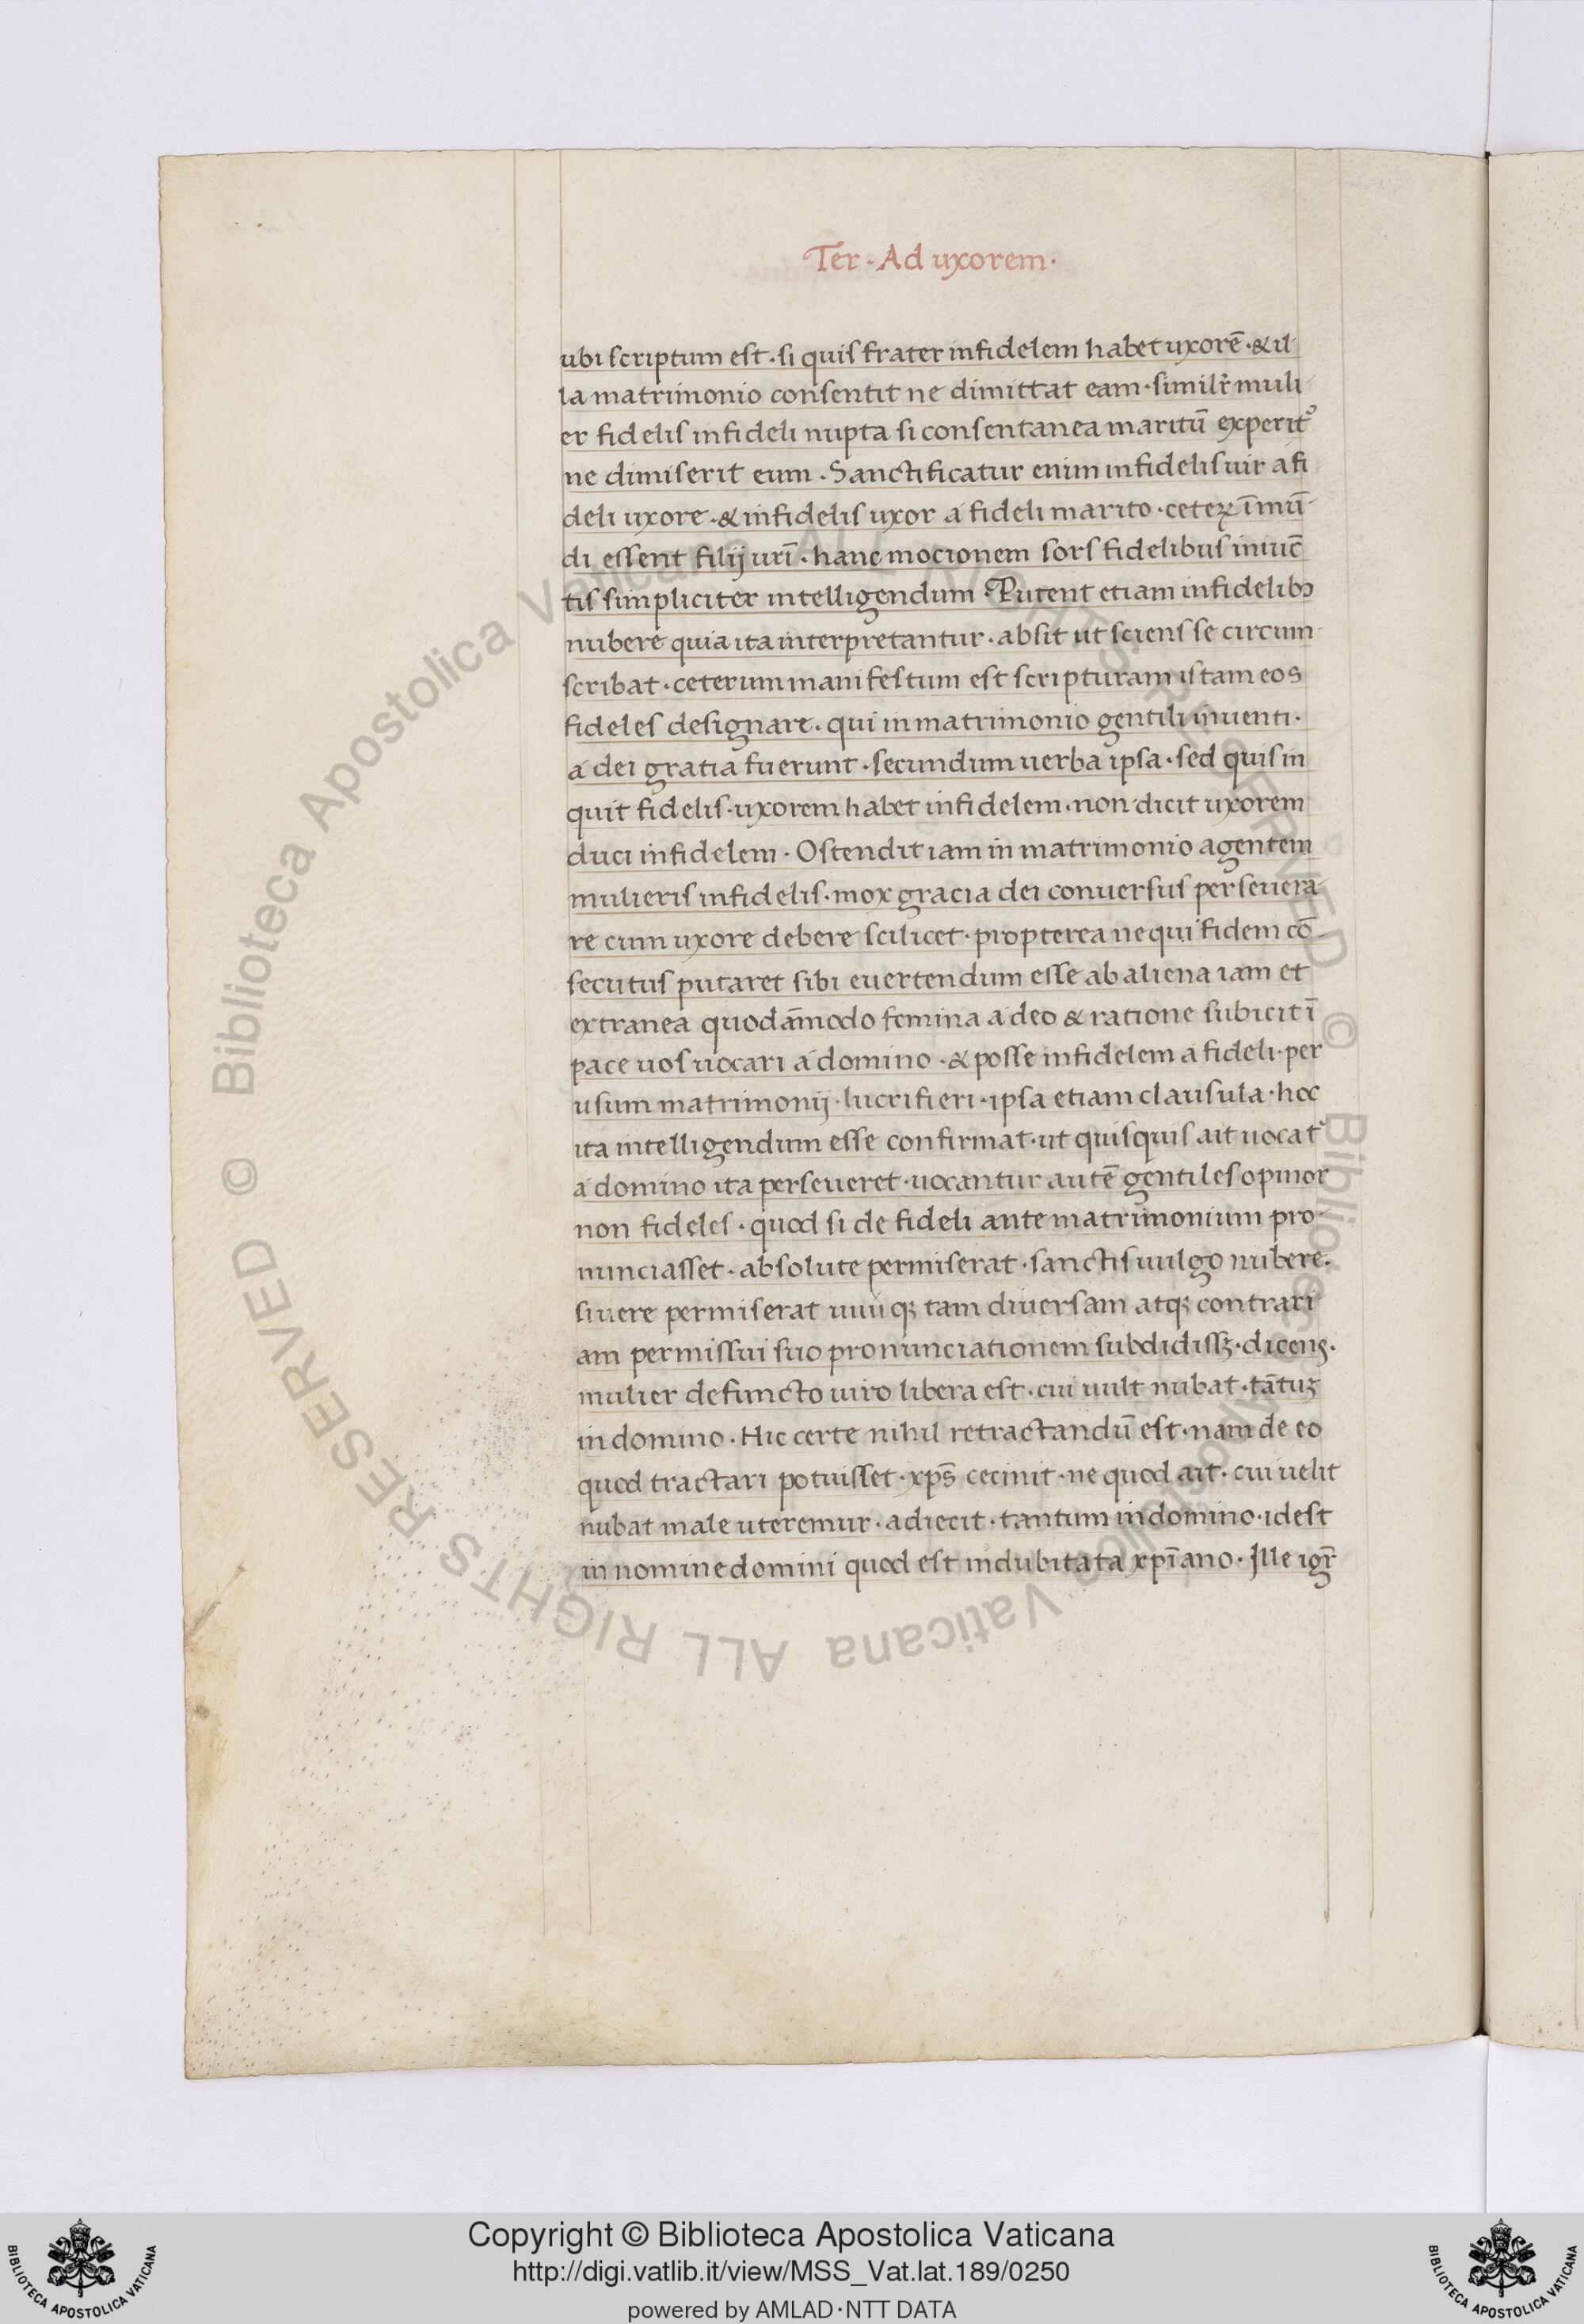 Ter · Ad uxorem ·
ubi scriptum est · si quis frater infidelem habet uxorē · & il-
la matrimonio consentit ne dimittat eam · similr̄ muli-
er fidelis infideli nupta si consentanea maritū experit᷑
ne dimiserit eum · Sanctificatur enim infidelis uir a fi
deli uxore · & infidelis uxor a fideli marito · ceteꝝ īmū-
di essent filij urī · hanc mocionem sors fidelibus iniuc̄
tis simpliciter intelligendum · Putent etiam infidelibꝰ
nubere quia ita interpretantur · absit ut sciens se circum-
scribat · ceterum manifestum est scripturam istam eos
fideles designare · qui in matrimonio gentili inuenti ·
a dei gratia fuerunt · secundum uerba ipsa · sed quis in
quit fidelis · uxorem habet infidelem · non dicit uxorem
duci infidelem · Ostendit iam in matrimonio agentem
mulieris infidelis · mox gracia dei conuersus perseuera-
re cum uxore debere scilicet · propterea ne qui fidem cō-
secutus putaret sibi euertendum esse ab aliena iam et
extranea quodāmodo femina a deo & ratione subicit ī
pace uos uocari a domino · & posse infidelem a fideli · per
usum matrimonij · lucrifieri · ipsa etiam clausula · hoc
ita intelligendum esse confirmat · ut quisquis ait uocat᷑
a domino ita perseueret · uocantur autē gentiles opinor
non fideles · quod si de fideli ante matrimonium pro-
nunciasset · absolute permiserat · sanctis uulgo nubere ·
si uere permiserat nūqꝫ tam diuersam atqꝫ contrari
am permissui suo pronunciationem subdidissꝫ · dicens ·
mulier defuncto uiro libera est · cui uult nubat · tātuꝫ
in domino · Hic certe nihil retractandū est · nam de eo
quod tractari potuisset · xp̄s cecinit · ne quod ait · cui uelit
nubat male uteremur · adiecit · tantum in domino · id est
in nomine domini quod est indubitata xpīano · Ille igr̄
© Biblioteca Apostolica Vaticana ALL RIGHTS RESERVED © Biblioteca Apostolica Vaticana ALL RIGHTS RESERVED
Copyright © Biblioteca Apostolica Vaticana
http://digi.vatlib.it/view/MSS_Vat.lat.189/0250
powered by AMLAD·NTT DATA
BIBLIOTECA APOSTOLICA VATICANA
BIBLIOTECA APOSTOLICA VATICANA